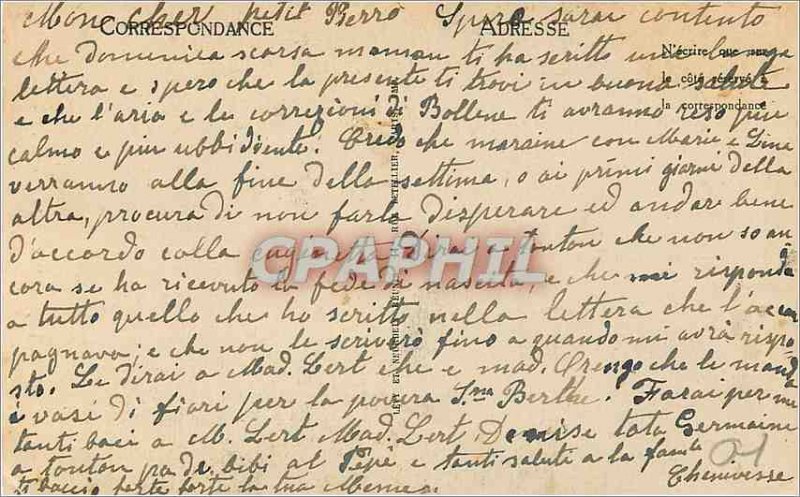 Mon cher petit Pierro Spero sarai contento
CORRESPONDANCE
ADRESSE
che domenica scorsa maman ti ha scritto una lunga
N'écrire que sur
lettera e spero che la presente ti trovi in buona salute
le côté réservé à
e che l'aria e le correzioni di Bollene ti avranno reso piu
la correspondance
calmo e piu ubbidiente. Credo che maraine con Marie e Dine
verranno alla fine della settima, o ai primi giorni della
altra, procura di non farla disperare ed andar bene
d'accordo colla cuginetta. Dirai a tonton che non so an
cora se ha ricevuto la fede di nascita, e che mi risponda
a tutto quello che ho scritto nella lettera che l'accom
pagnava; e che non le scriverò fino a quando mi avrà rispo-
sto. Le dirai a Mad. Lert che e mad. che le manda
i vasi di fiori per la povera Sma Berthe. Farai per me
tanti baci a M. Lert Mad. Lert, Denise tata Germaine
a tonton bibi al Pépé e tanti salute a la fam
ti bacio forte forte la tua
LEVY ET NEURDEIN REUNIS
CPAPHIL